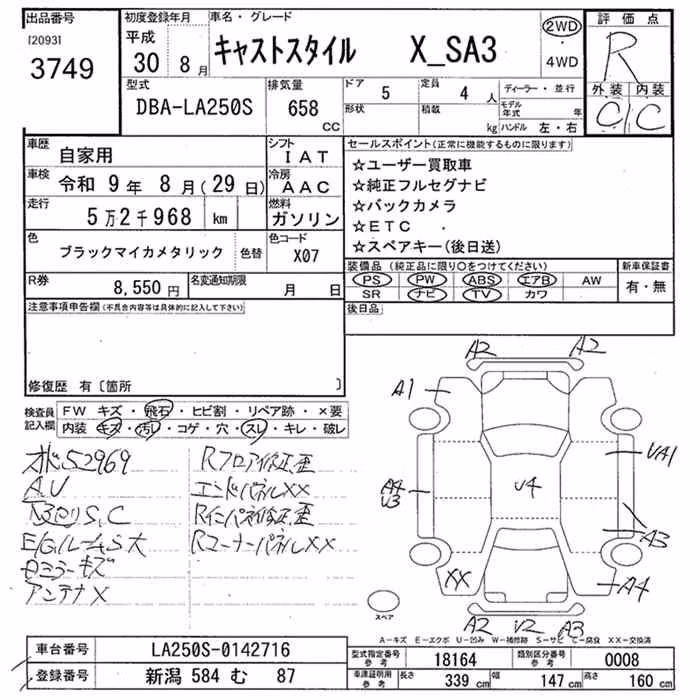 出品番号
[2093]
3749
初度登録年月
平成
30 8月
車名・グレード
キャストスタイル X_SA3
2WD
・
4WD
評価点
R
外装 内装
C C
型式
DBA-LA250S
排気量
658
CC
ドア 5
定員 4 人
形状
積載 kg
ディーラー・並行
モデル年式 年
ハンドル 左・右
車歴 自家用
シフト IAT
車検 令和 9年 8月(29日)
冷房 AAC
走行 5万2千968 km
燃料 ガソリン
色 ブラックマイカメタリック 色替
色コード X07
R券 8,550円
名変通知期限 月 日
セールスポイント(正常に機能するものに限ります)
☆ユーザー買取車
☆純正フルセグナビ
☆バックカメラ
☆ETC
☆スペアキー(後日送)
装備品(純正品に限り○をつけてください)
PS PW ABS エアB AW
SR ナビ TV カワ
新車保証書
有・無
後日品
注意事項申告欄(不具合内容等は具体的に記入して下さい)
修復歴 有〔箇所 〕
検査員記入欄
FW キズ・飛石・ヒビ割・リペア跡・×要
内装・キズ・汚レ・コゲ・穴・スレ・キレ・破レ
オド52969
AU
S,C
E/Gルーム S大
キズ
アンテナX
Rフロアイ修正歪
エンドパネルXX
Rインパネ修正歪
RコーナーパネルXX
A2 A2
A1
UA1
A4
U3
U4
A3
XX
A4
A2 U2 A3
スペア
A-キズ E-エクボ U-凹み W-補修跡 S-サビ C-腐食 XX-交換済
車台番号 LA250S-0142716
登録番号 新潟 584 む 87
型式指定番号 参考 18164
類別区分番号 参考 0008
車庫証明用 参考 長さ 339 cm 幅 147 cm 高さ 160 cm